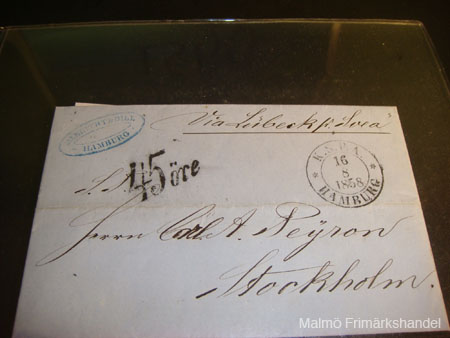 HAMBURG
Via Lübeck pr Svea
45 öre
K.S.P.A.
16
8
1858
HAMBURG
Herrn Carl A. Peyron
Stockholm.
Malmö Frimärkshandel